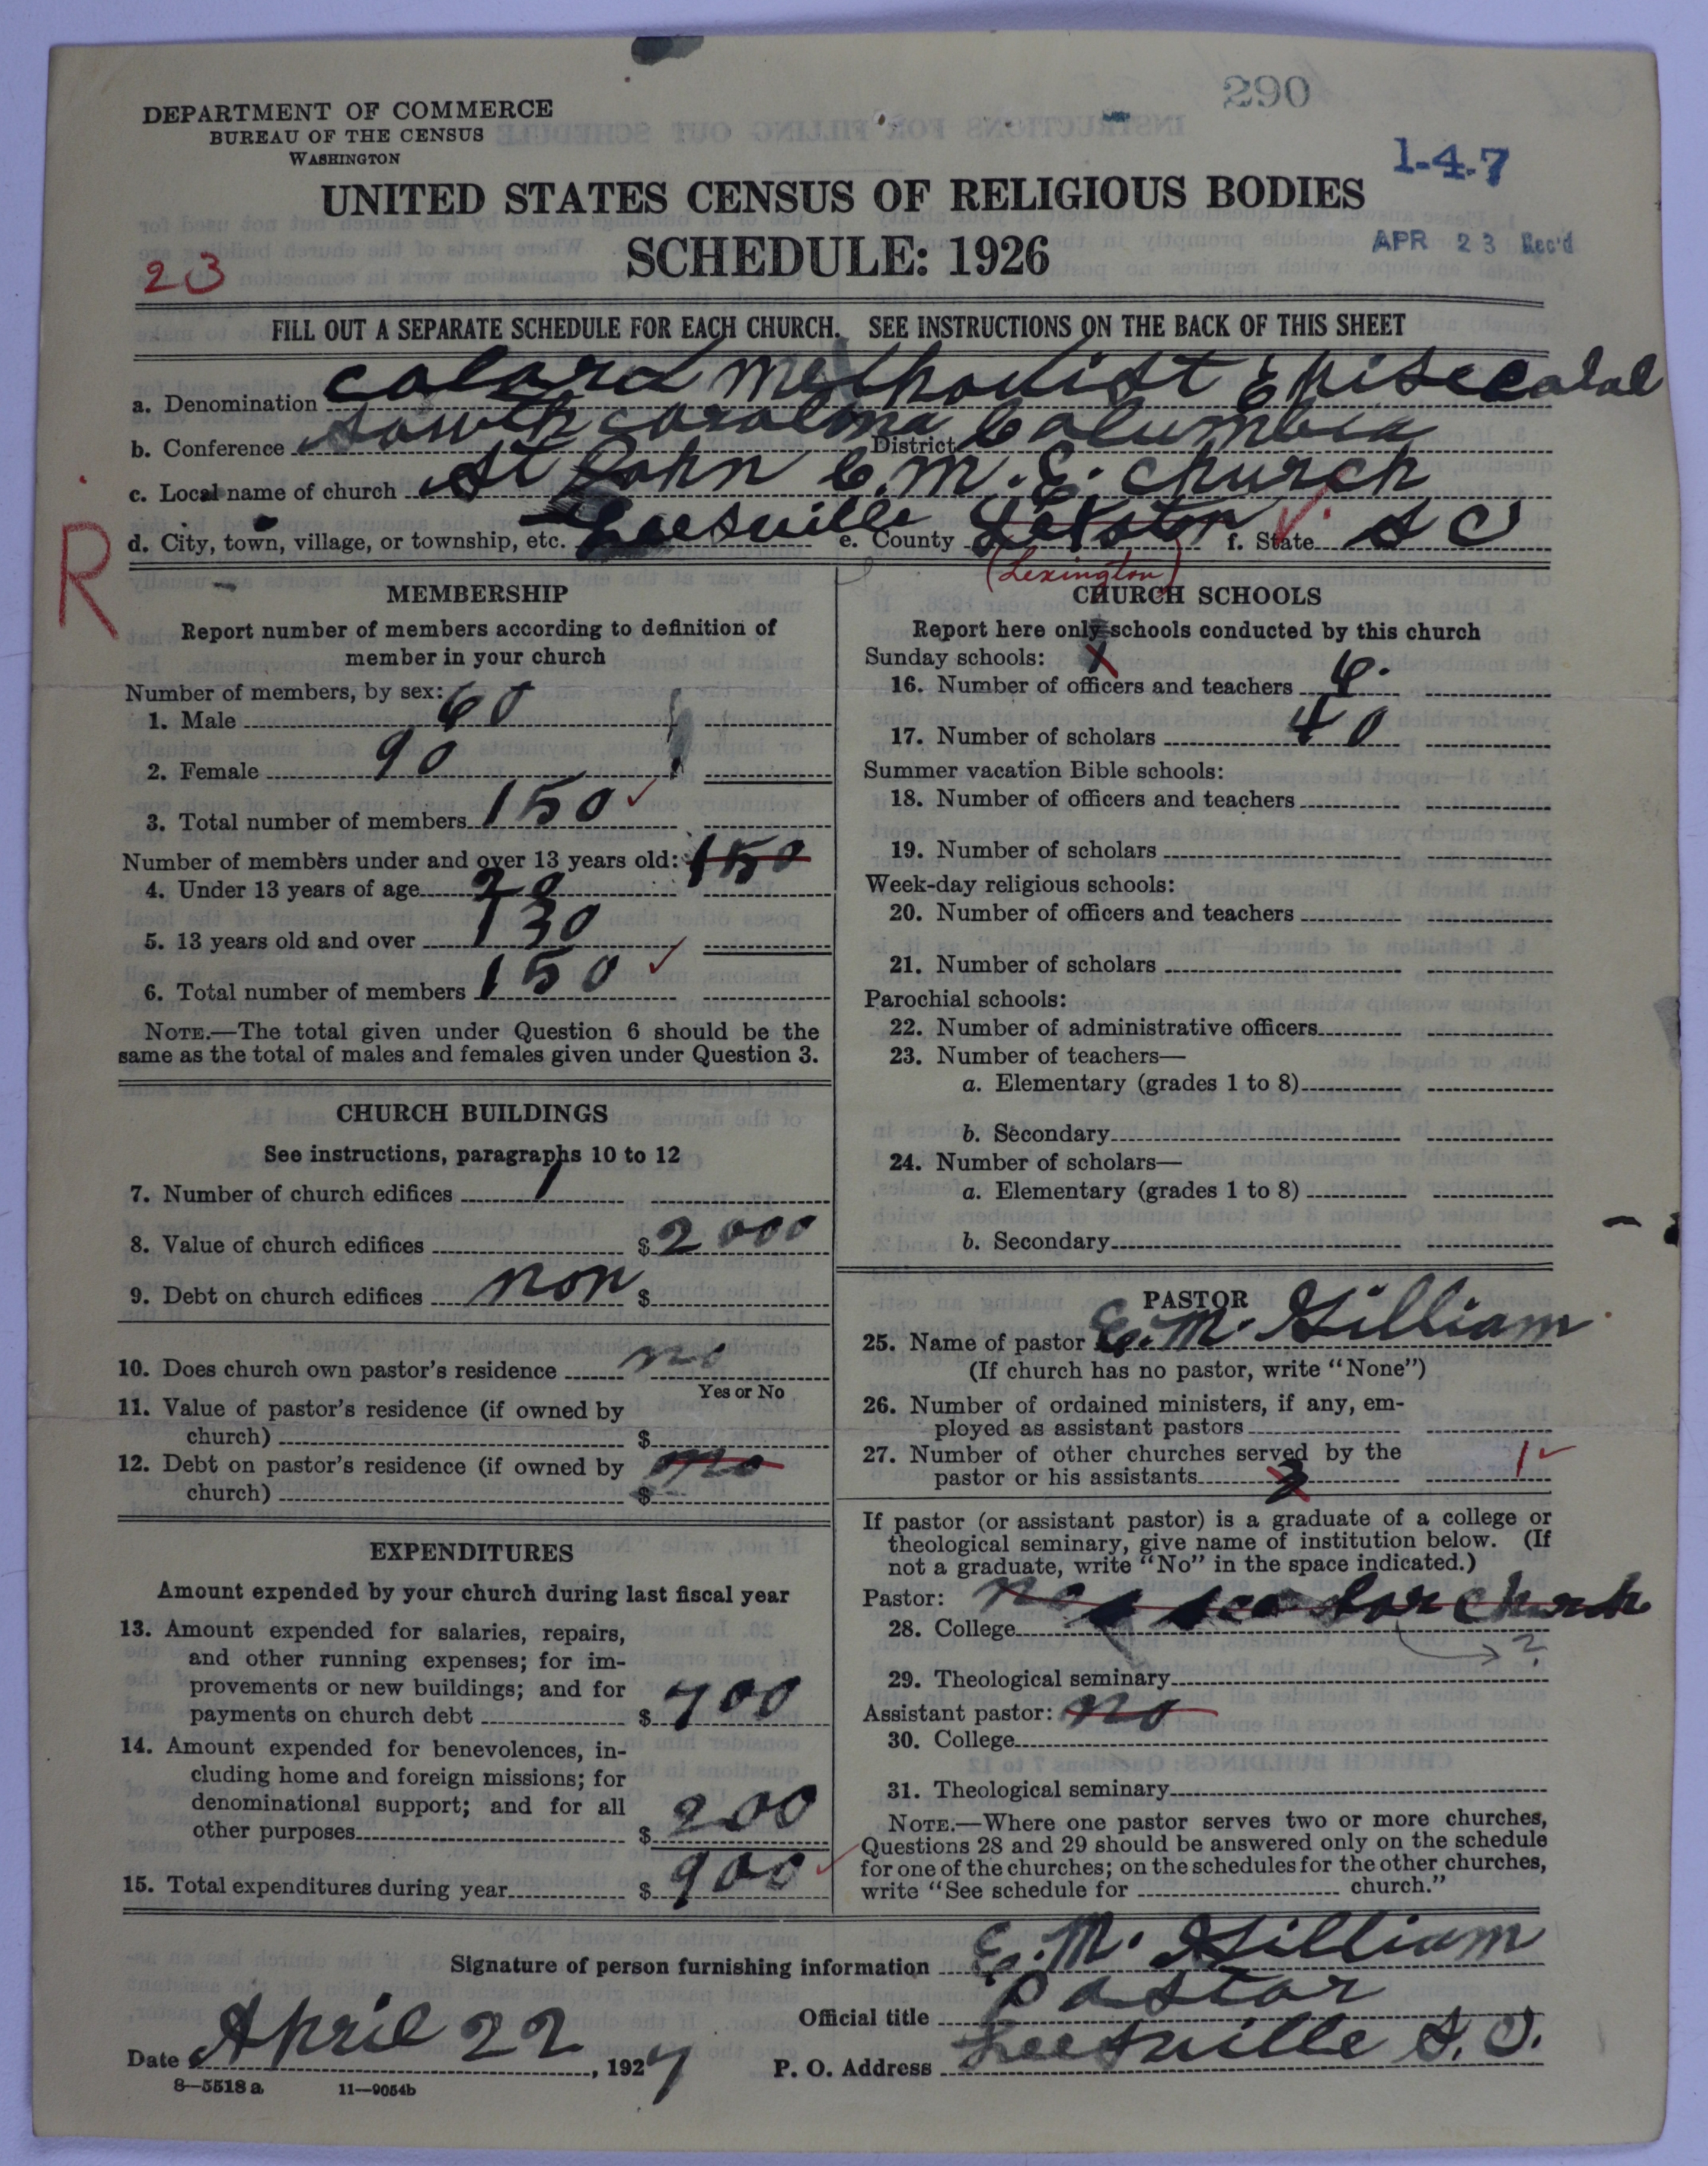 290
DEPARTMENT OF COMMERCE
BUREAU OF THE CENSUS
WASHINGTON
1-4-7
UNITED STATES CENSUS OF RELIGIOUS BODIES
SCHEDULE: 1926
APR 23 Rec'd
23
FILL OUT A SEPARATE SCHEDULE FOR EACH CHURCH. SEE INSTRUCTIONS ON THE BACK OF THIS SHEET
a. Denomination colord Methodist Episccalal
b. Conference South Carolina District Columbia
c. Local name of church St John C. M. E. church
d. City, town, village, or township, etc. Leesville e. County Lexston f. State S C
R
(Lexington)
MEMBERSHIP
Report number of members according to definition of
member in your church
Number of members, by sex:
1. Male 60
2. Female 90
3. Total number of members 150
Number of members under and over 13 years old: 150
4. Under 13 years of age 20
5. 13 years old and over 130
6. Total number of members 150
NOTE.—The total given under Question 6 should be the
same as the total of males and females given under Question 3.
CHURCH BUILDINGS
See instructions, paragraphs 10 to 12
7. Number of church edifices 1
8. Value of church edifices $2000
9. Debt on church edifices non $
10. Does church own pastor's residence no
Yes or No
11. Value of pastor's residence (if owned by
church) $
12. Debt on pastor's residence (if owned by no
church) $
EXPENDITURES
Amount expended by your church during last fiscal year
13. Amount expended for salaries, repairs,
and other running expenses; for im-
provements or new buildings; and for
payments on church debt $700
14. Amount expended for benevolences, in-
cluding home and foreign missions; for
denominational support; and for all
other purposes $200
15. Total expenditures during year $900
CHURCH SCHOOLS
Report here only schools conducted by this church
Sunday schools:
16. Number of officers and teachers 6.
17. Number of scholars 40
Summer vacation Bible schools:
18. Number of officers and teachers
19. Number of scholars
Week-day religious schools:
20. Number of officers and teachers
21. Number of scholars
Parochial schools:
22. Number of administrative officers
23. Number of teachers—
a. Elementary (grades 1 to 8)
b. Secondary
24. Number of scholars—
a. Elementary (grades 1 to 8)
b. Secondary
PASTOR
25. Name of pastor E. M. Gilliam
(If church has no pastor, write "None")
26. Number of ordained ministers, if any, em-
ployed as assistant pastors
27. Number of other churches served by the 1
pastor or his assistants
If pastor (or assistant pastor) is a graduate of a college or
theological seminary, give name of institution below. (If
not a graduate, write "No" in the space indicated.)
Pastor: no for church
28. College ?
29. Theological seminary
Assistant pastor: no
30. College
31. Theological seminary
NOTE.—Where one pastor serves two or more churches,
Questions 28 and 29 should be answered only on the schedule
for one of the churches; on the schedules for the other churches,
write "See schedule for church."
Signature of person furnishing information E. M. Gilliam
Official title Pastor
Date April 22, 1927 P. O. Address Leesville S. C.
8—5518 a 11—9054b